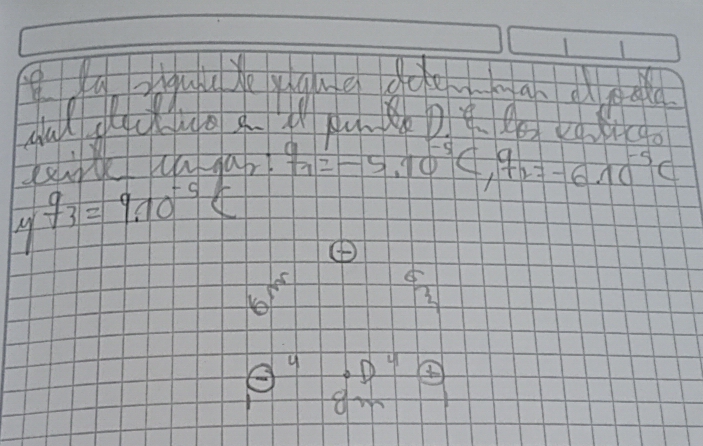 En la siguiente figura determinar el poten
cial electrico en el punto D. En los vertices
existe cargas: q1 = -5.10^-9 C, q2 = -6.10^-9 C
y q3 = 9.10^-9 C
⊖
6m 5m
⊖ 4 . D 4 ⊕
8m